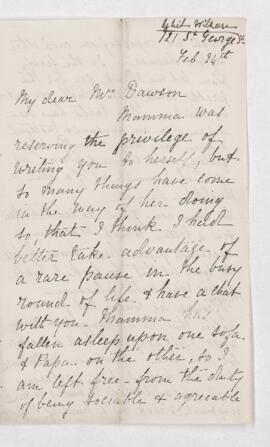 121 St George St
Feb 24th
My dear Mrs Dawson
Mamma was
reserving the privilege of
writing you to herself, but
so many things have come
in the way of her doing
so, that I think I had
better take advantage of
a rare pause in the busy
round of life & have a chat
with you. Mamma has
fallen asleep upon one sofa
& Papa on the other, so I
am left free from the duty
of being sociable & agreeable